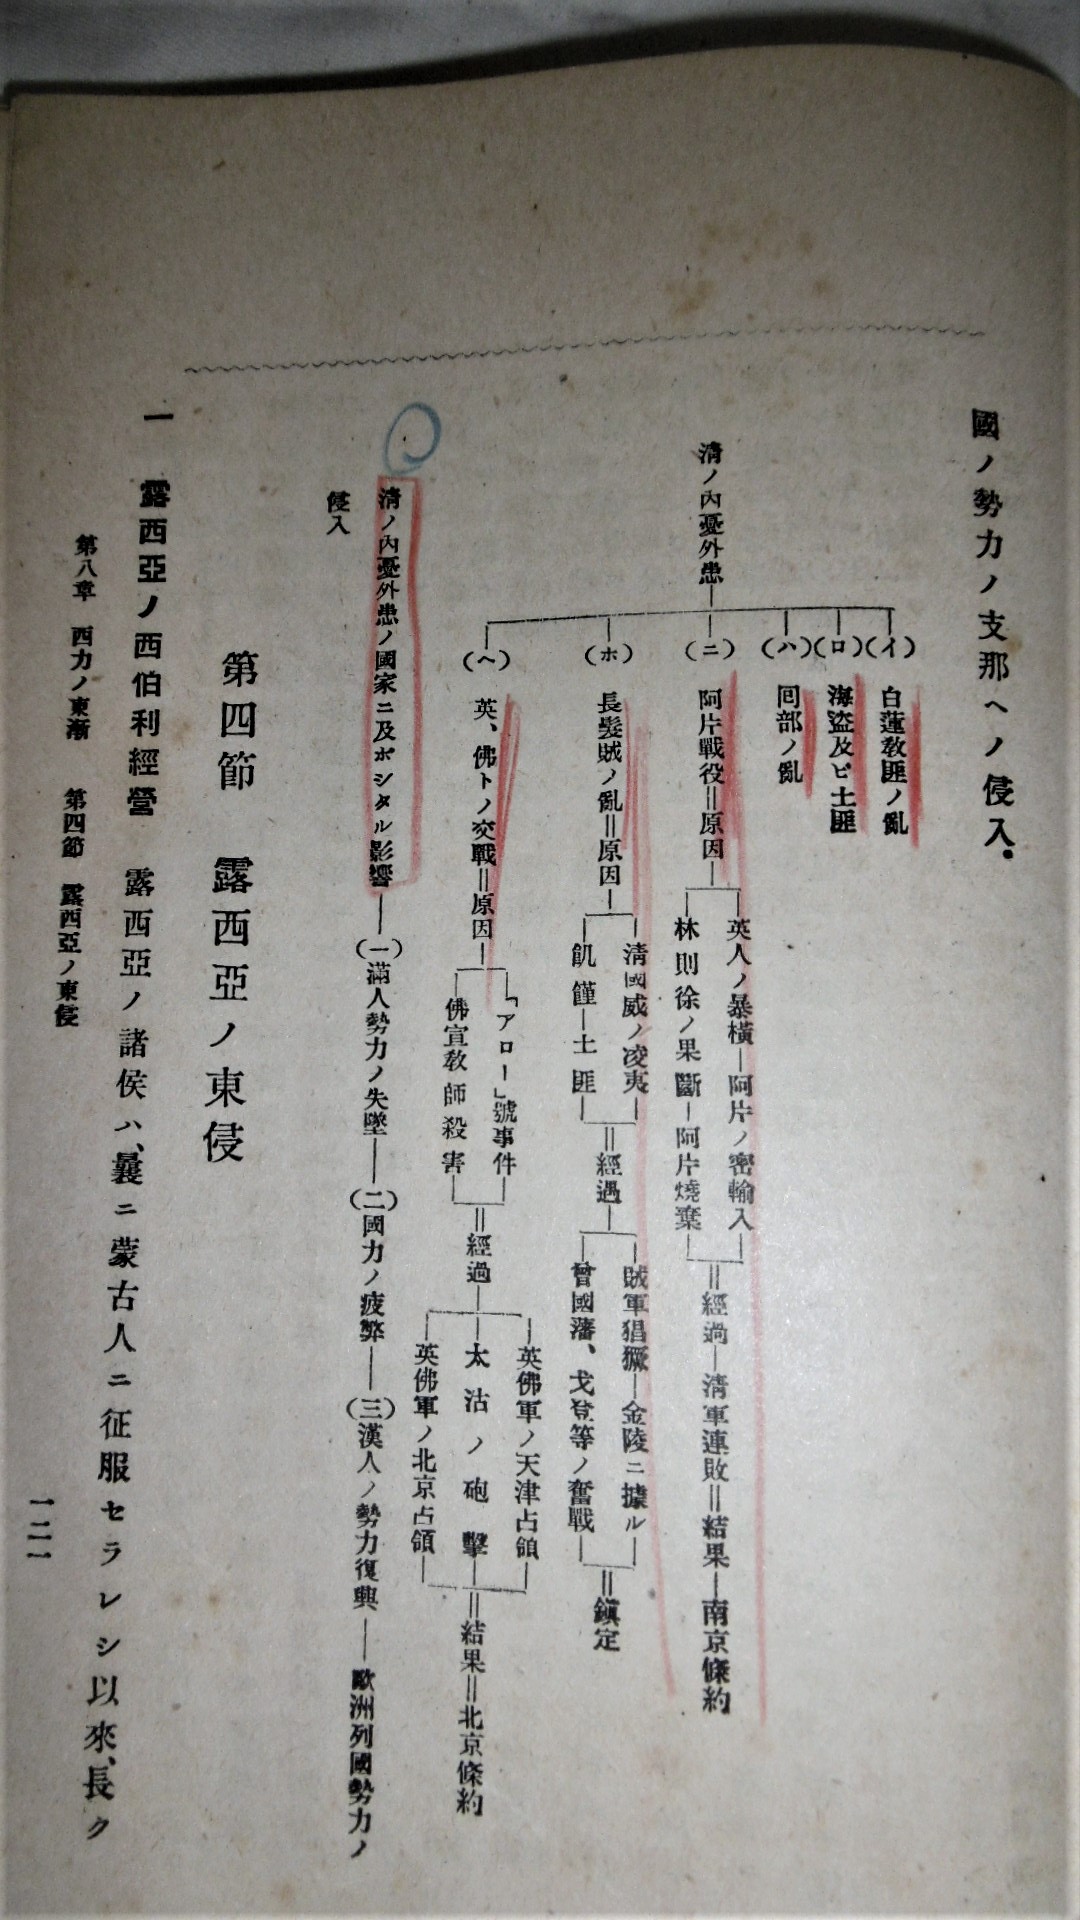 國ノ勢力ノ支那ヘノ侵入。
清ノ內憂外患
(イ) 白蓮敎匪ノ亂
(ロ) 海盜及ビ土匪
(ハ) 囘部ノ亂
(ニ) 阿片戰役=原因
英人ノ暴橫―阿片ノ密輸入
林則徐ノ果斷―阿片燒棄
=經過―淸軍連敗=結果―南京條約
(ホ) 長髮賊ノ亂=原因
淸國威ノ凌夷
飢饉―土匪
=經過
賊軍猖獗―金陵ニ據ル
曾國藩、戈登等ノ奮戰
=鎭定
(ヘ) 英、佛トノ交戰=原因
「アロー」號事件
佛宣敎師殺害
=經過
英佛軍ノ天津占領
太沽ノ砲擊
英佛軍ノ北京占領
=結果=北京條約
清ノ內憂外患ノ國家ニ及ボシタル影響―(一)滿人勢力ノ失墜―(二)國力ノ疲弊―(三)漢人ノ勢力復興―歐洲列國勢力ノ
侵入
第四節 露西亞ノ東侵
一 露西亞ノ西伯利經營 露西亞ノ諸侯ハ、曩ニ蒙古人ニ征服セラレシ以來、長ク
第八章 西力ノ東漸 第四節 露西亞ノ東侵
一二一